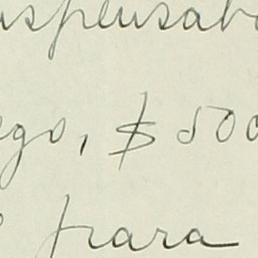 uspensabo
ego, $ 500
para